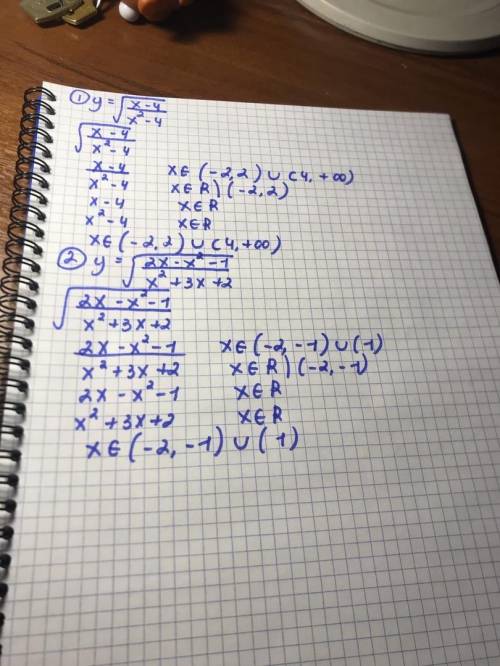 ① y = √((x-4)/(x²-4))
√((x-4)/(x²-4))
(x-4)/(x²-4) x∈(-2,2)∪(4,+∞)
x∈R\(-2,2)
x-4 x∈R
x²-4 x∈R
x∈(-2,2)∪(4,+∞)
② y = √((2x-x²-1)/(x²+3x+2))
√((2x-x²-1)/(x²+3x+2))
(2x-x²-1)/(x²+3x+2) x∈(-2,-1)∪(1)
x∈R\(-2,-1)
2x-x²-1 x∈R
x²+3x+2 x∈R
x∈(-2,-1)∪(1)